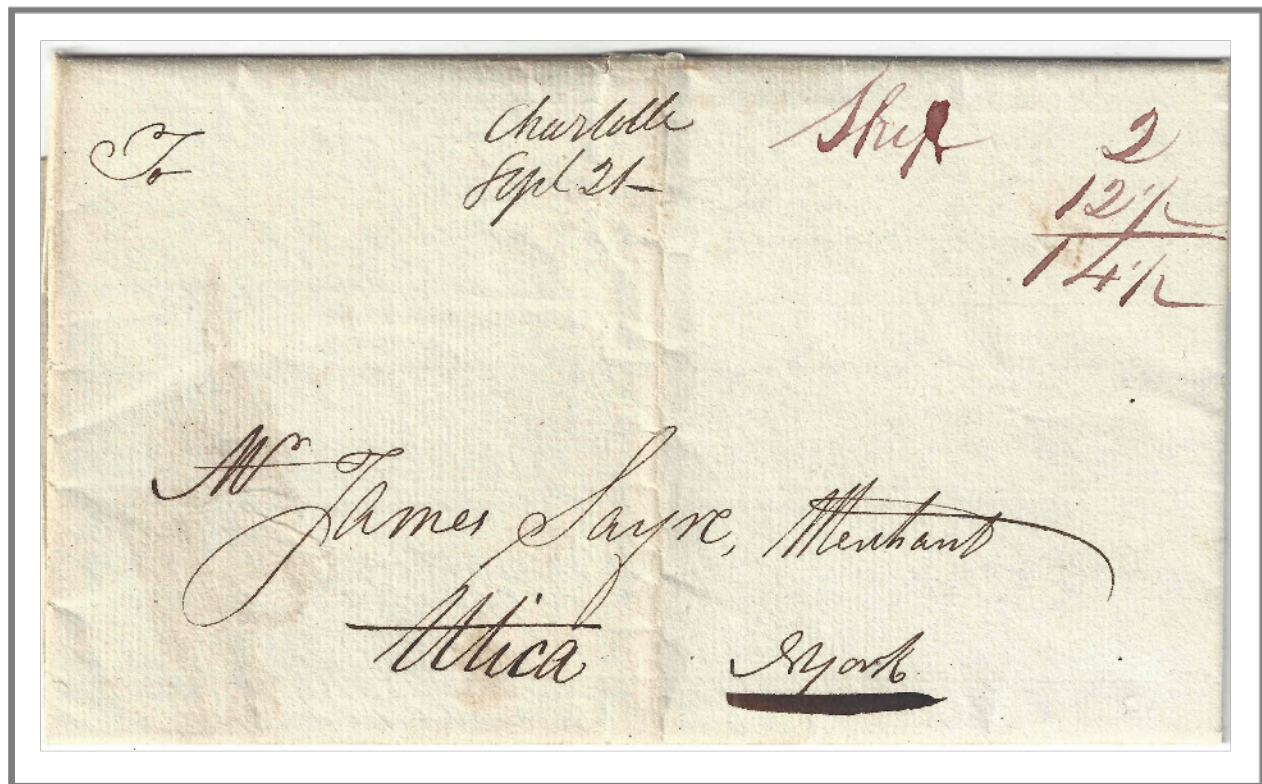 To
Charlotte
Sept 21
Ship
2
12 1/2
14 1/2
Mr James Sayre, Merchant
Utica
N York